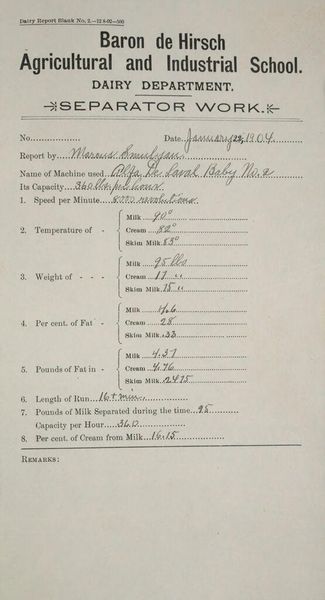 Dairy Report Blank No. 2.—12 8-02—500
Baron de Hirsch
Agricultural and Industrial School.
DAIRY DEPARTMENT.
SEPARATOR WORK.
No. Date January 22, 1904.
Report by Marcus Smulyan
Name of Machine used Alfa De Laval Baby No. 2
Its Capacity 360 lbs. per hour.
1. Speed per Minute 8000 revolutions.
2. Temperature of - Milk 90°
Cream 82°
Skim Milk 83°
3. Weight of - - - Milk 95 lbs
Cream 17 "
Skim Milk 75 "
4. Per cent. of Fat - Milk 4.6
Cream 28
Skim Milk .33
5. Pounds of Fat in - Milk 4.37
Cream 4.76
Skim Milk .2475
6. Length of Run 16 + min.
7. Pounds of Milk Separated during the time 95
Capacity per Hour 360
8. Per cent. of Cream from Milk 16.15
REMARKS: